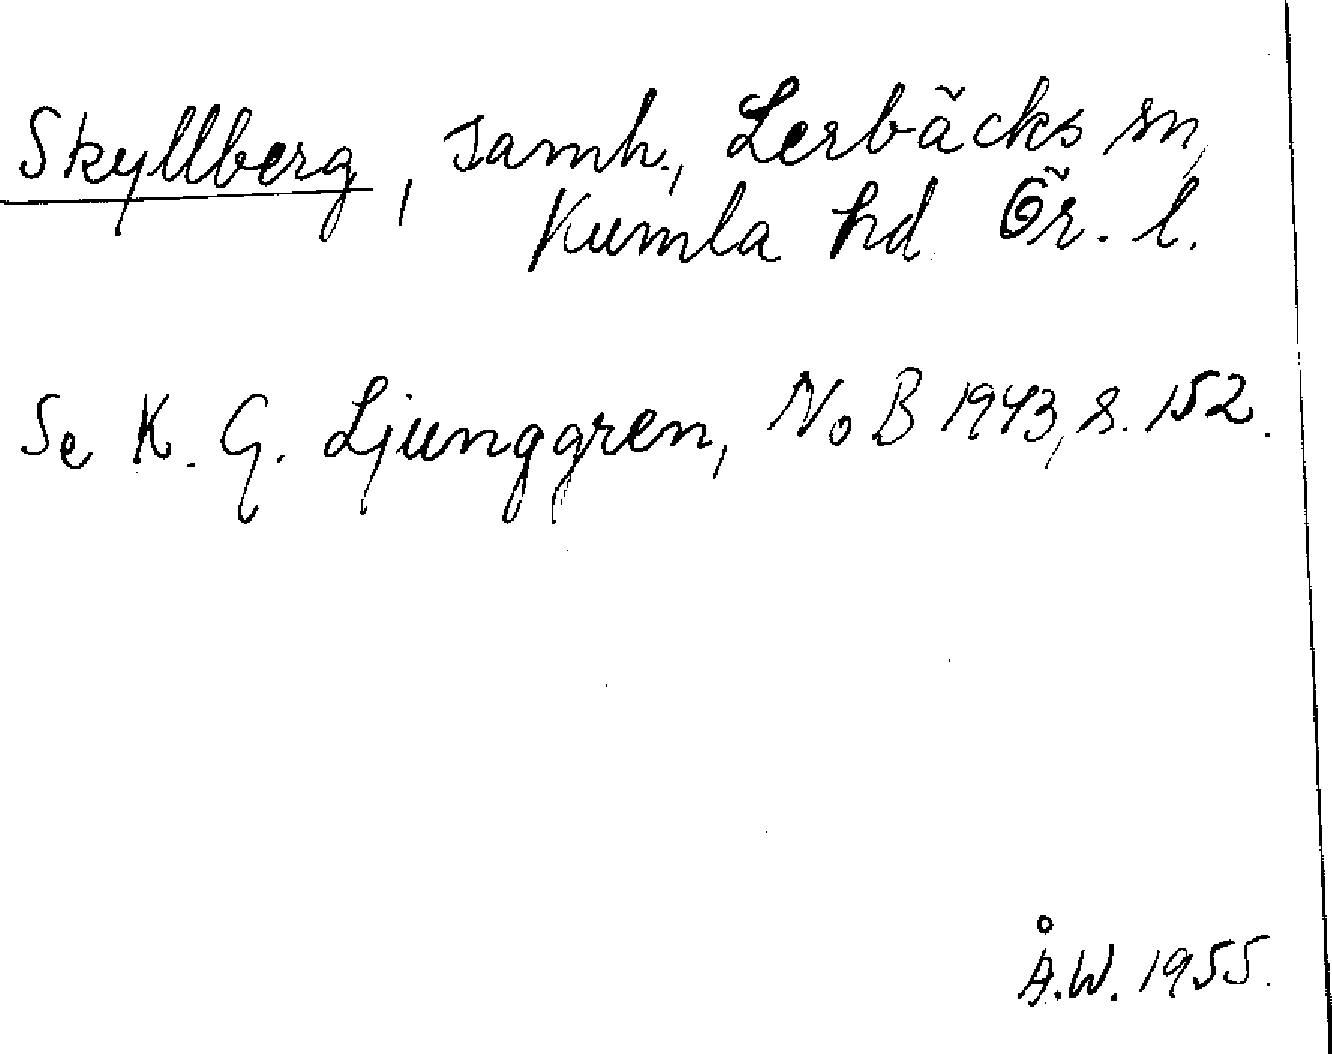 Skyllberg, samh., Lerbäcks sn,
Kumla hd Ör. l.
Se K. G. Ljunggren, NoB 1943, s. 152.
Å.W. 1955.